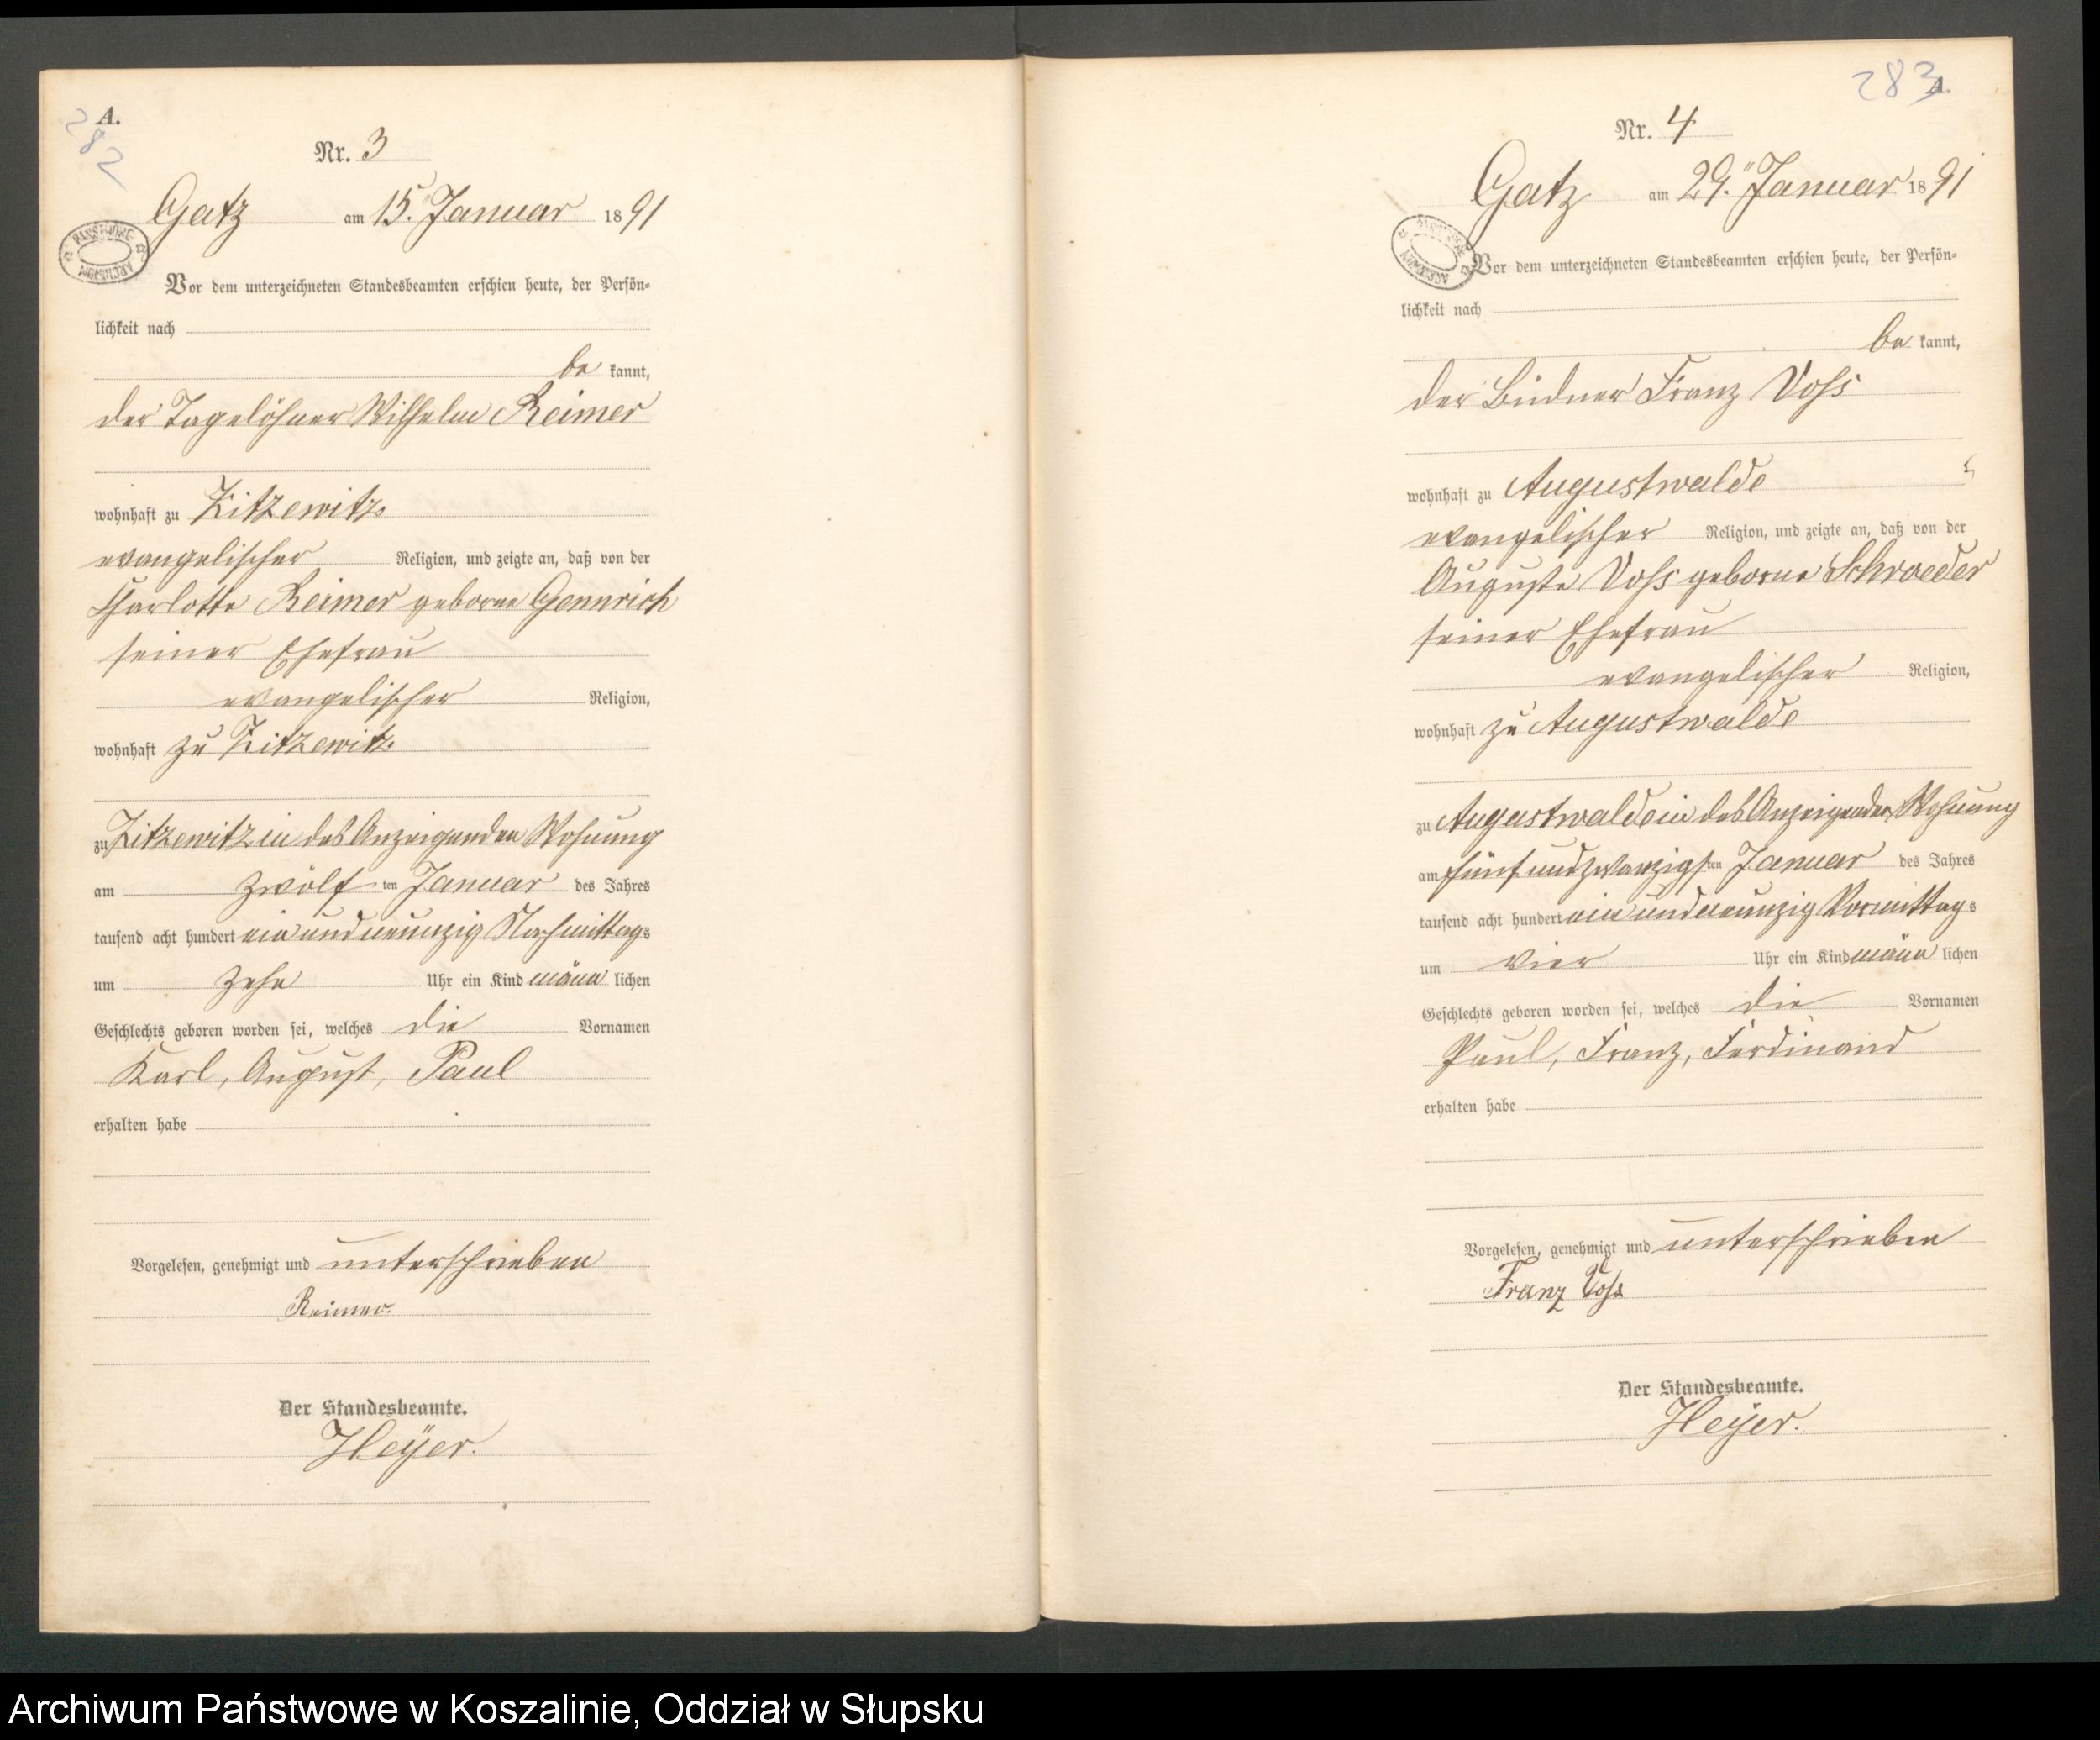 A.
282
Nr. 3
Gatz am 15. Januar 1891
Vor dem unterzeichneten Standesbeamten erschien heute, der Persön-
lichkeit nach
be kannt,
der Tagelöhner Wilhelm Reimer
wohnhaft zu Zitzewitz
evangelischer Religion, und zeigte an, daß von der
Charlotte Reimer geborne Gennrich
seiner Ehefrau
evangelischer Religion,
wohnhaft zu Zitzewitz
zu Zitzewitz in des Anzeigenden Wohnung
am zwölf ten Januar des Jahres
tausend acht hundert ein und neunzig Nachmittags
um zehn Uhr ein Kind männ lichen
Geschlechts geboren worden sei, welches die Vornamen
Karl, August, Paul
erhalten habe
Vorgelesen, genehmigt und unterschrieben
Reimer.
Der Standesbeamte.
Heyer.
283
A.
Nr. 4
Gatz am 29. Januar 1891
Vor dem unterzeichneten Standesbeamten erschien heute, der Persön-
lichkeit nach
be kannt,
der Büdner Franz Voss
wohnhaft zu Augustwalde
evangelischer Religion, und zeigte an, daß von der
Auguste Voss geborne Schroeder
seiner Ehefrau
evangelischer Religion,
wohnhaft zu Augustwalde
zu Augustwalde in des Anzeigenden Wohnung
am fünf und zwanzigsten Januar des Jahres
tausend acht hundert ein und neunzig Vormittags
um vier Uhr ein Kind männ lichen
Geschlechts geboren worden sei, welches die Vornamen
Paul, Franz, Ferdinand
erhalten habe
Vorgelesen, genehmigt und unterschrieben
Franz Voss
Der Standesbeamte.
Heyer.
Archiwum Państwowe w Koszalinie, Oddział w Słupsku